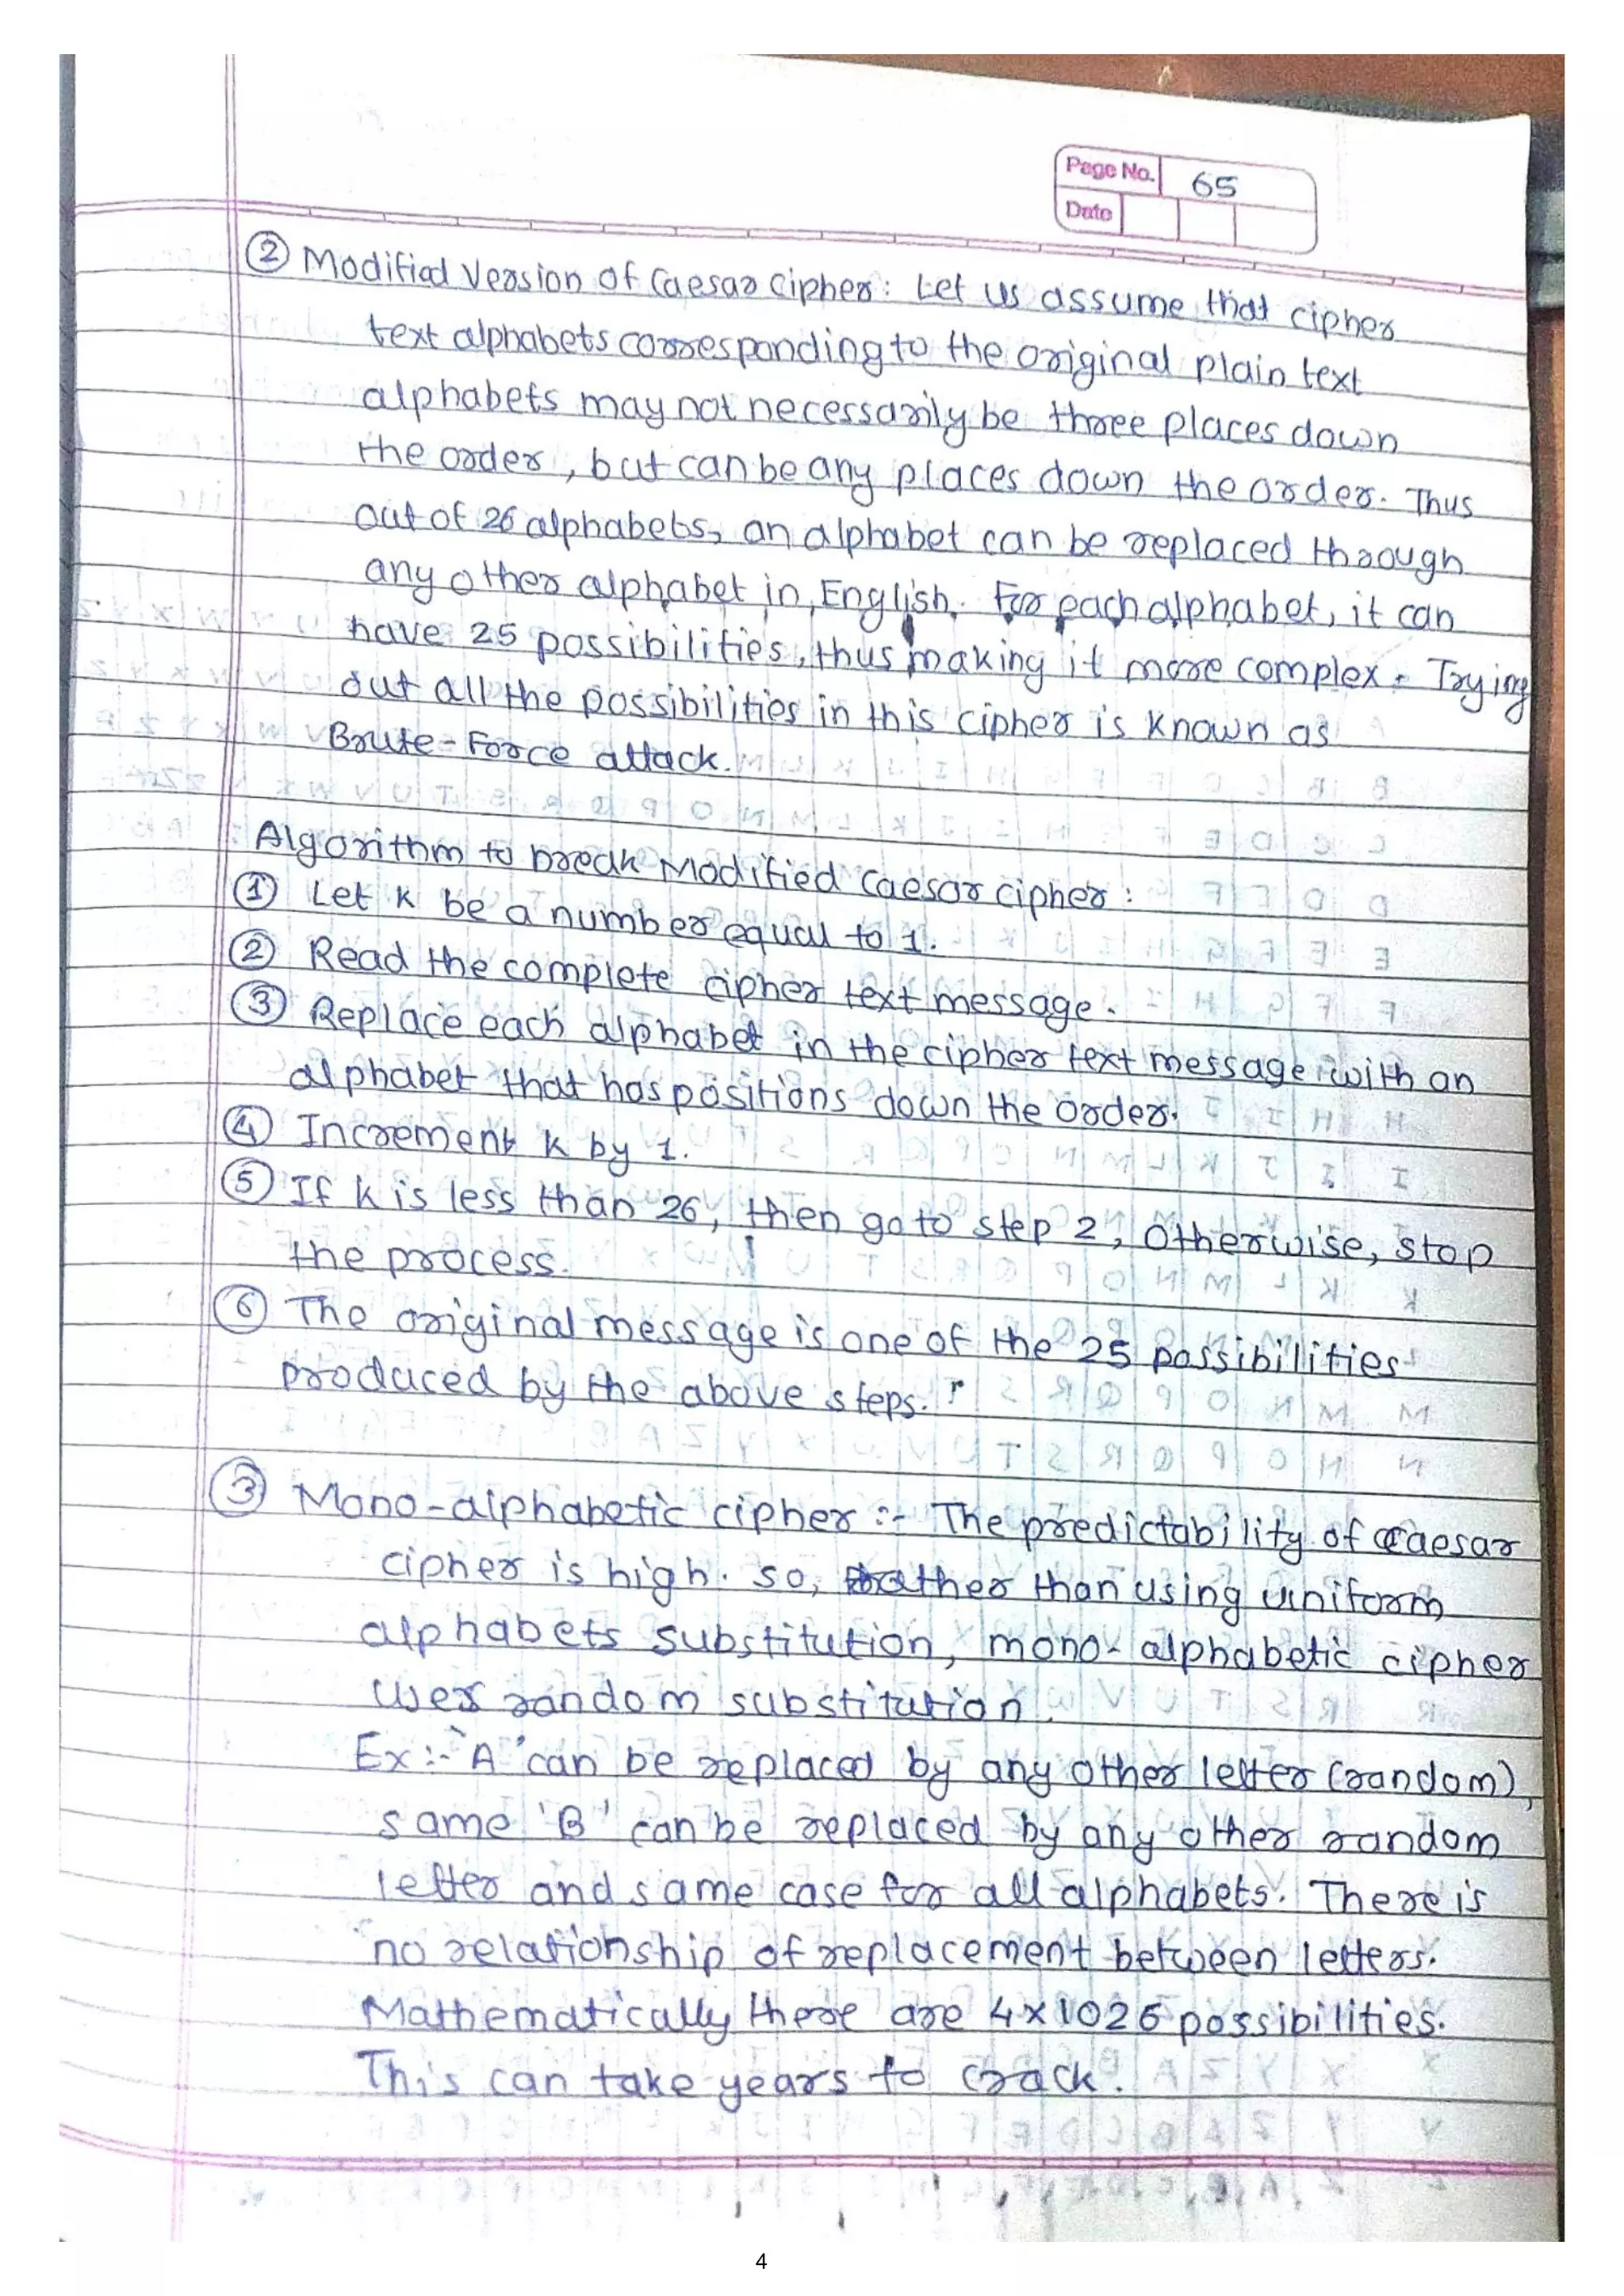 Page No. 65
Date
② Modified Version of Caesar Cipher: Let us assume that cipher
text alphabets corresponding to the original plain text
alphabets may not necessarily be three places down
the order, but can be any places down the order. Thus
out of 26 alphabets, an alphabet can be replaced through
any other alphabet in English. For each alphabet, it can
have 25 possibilities, thus making it more complex. Trying
out all the possibilities in this cipher is known as
Brute-Force attack.
Algorithm to break Modified Caesar cipher:
① Let K be a number equal to 1.
② Read the complete cipher text message.
③ Replace each alphabet in the cipher text message with an
alphabet that has positions down the order.
④ Increment K by 1.
⑤ If K is less than 26, then go to step 2, Otherwise, stop
the process.
⑥ The original message is one of the 25 possibilities
produced by the above steps.
③ Mono-alphabetic cipher :- The predictability of Caesar
cipher is high. So, rather than using uniform
alphabets substitution, mono-alphabetic cipher
uses random substitution.
Ex:- 'A' can be replaced by any other letter (random),
same 'B' can be replaced by any other random
letter and same case for all alphabets. There is
no relationship of replacement between letters.
Mathematically there are 4x1026 possibilities.
This can take years to crack.
4